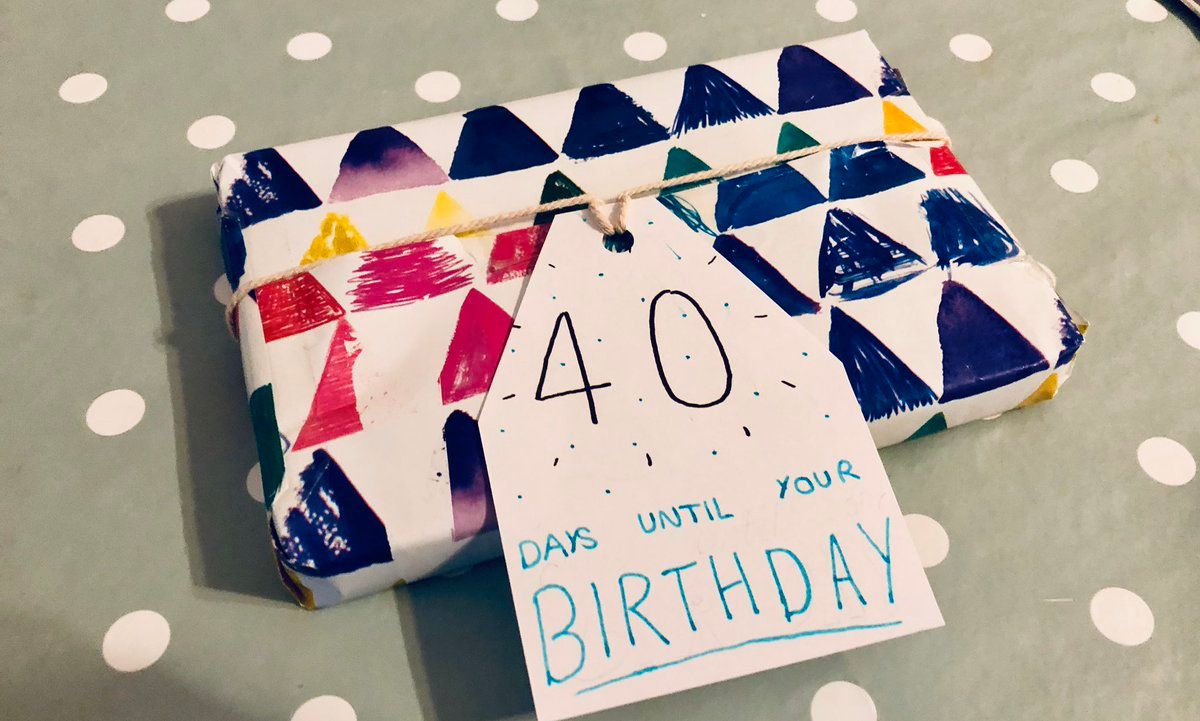 40
DAYS UNTIL YOUR
BIRTHDAY